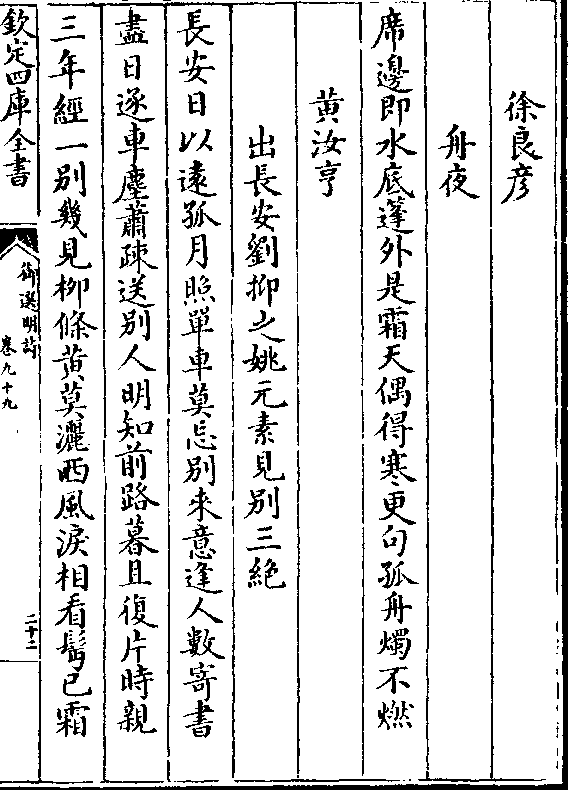 徐良彦
舟夜
席邊即水底蓬外是霜天偶得寒更句孤舟燭不燃
黄汝亨
出長安劉抑之姚元素見别三絶
長安日以遠孤月照單車莫忘别来意逢人數寄書
盡日逐車塵蕭疎送别人明知前路暮且復片時親
三年經一别幾見柳條黄莫灑西風淚相看髩已霜
欽定四庫全書
御選明詩
卷九十九
二十二